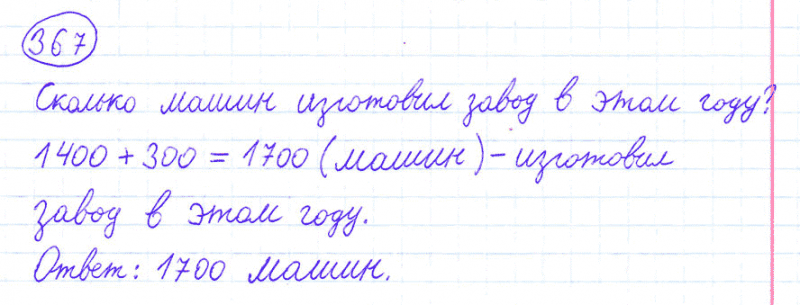 367
Сколько машин изготовил завод в этом году?
1400 + 300 = 1700 (машин) – изготовил
завод в этом году.
Ответ: 1700 машин.